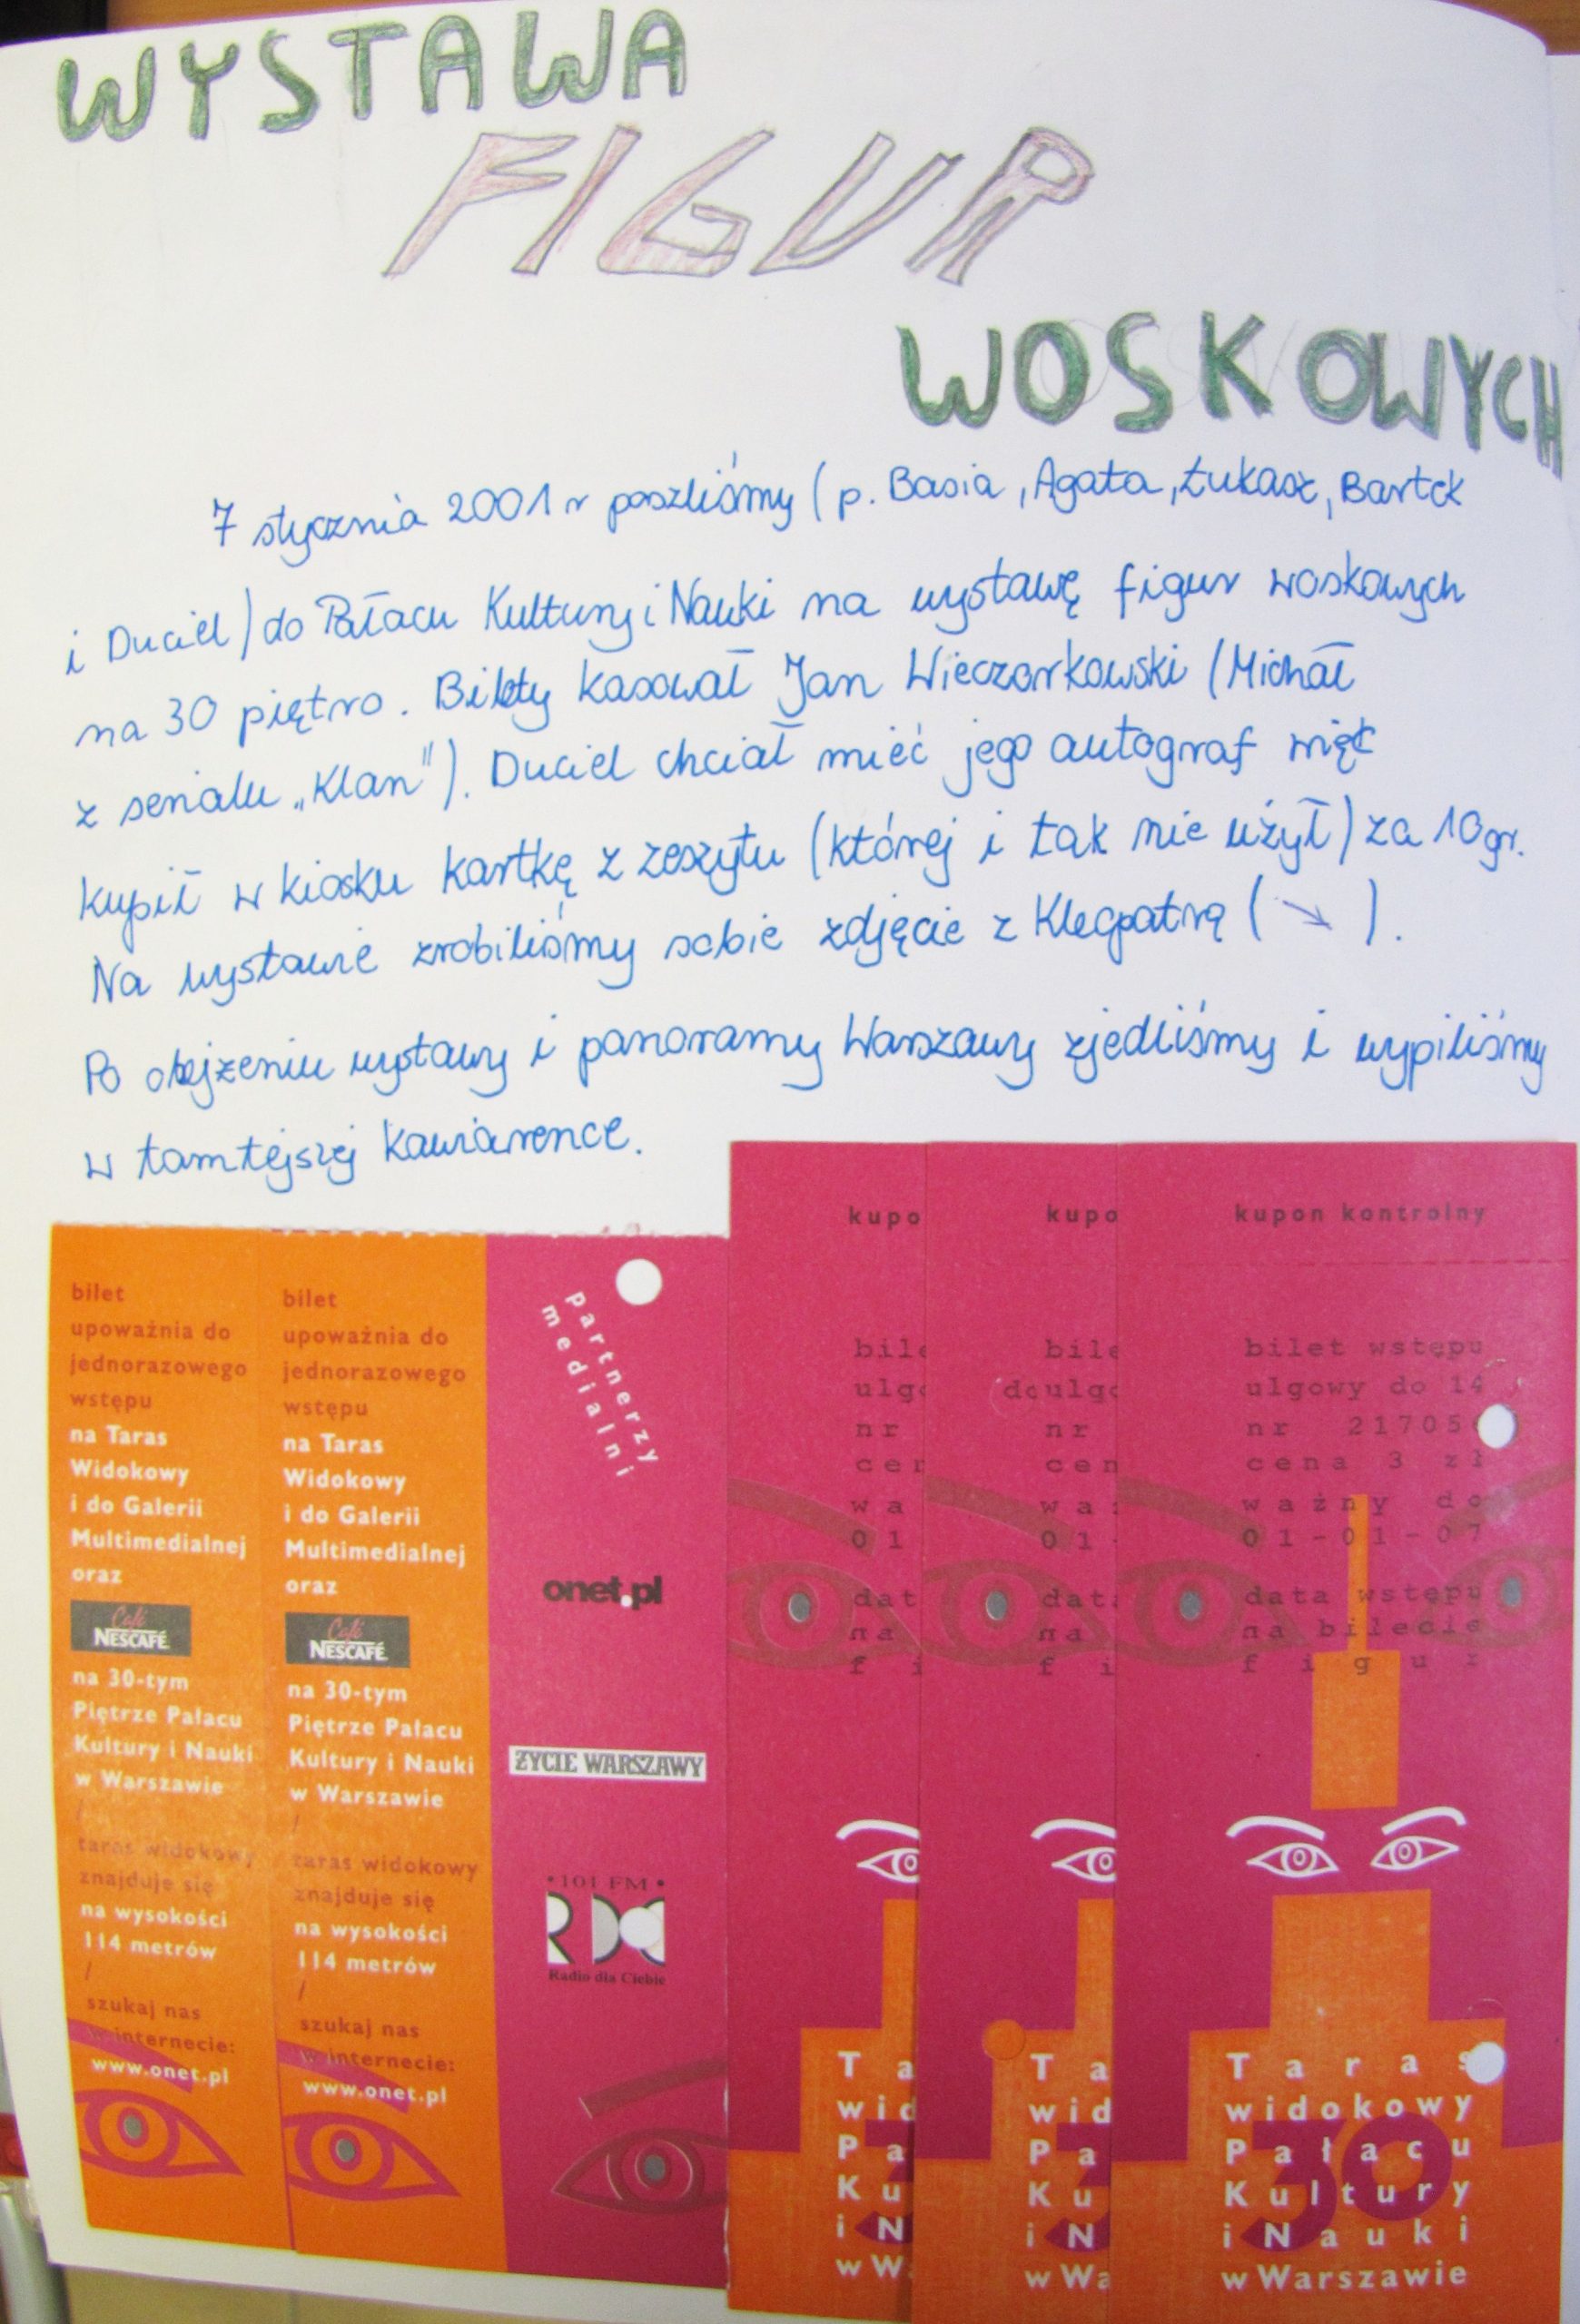 WYSTAWA
FIGUR
WOSKOWYCH
7 stycznia 2001 r poszliśmy (p. Basia, Agata, Łukasz, Bartek
i Duciel) do Pałacu Kultury i Nauki na wystawę figur woskowych
na 30 piętro. Bilety kasował Jan Wieczorkowski (Michał
z serialu „Klan"). Duciel chciał mieć jego autograf więc
kupił w kiosku kartkę z zeszytu (której i tak nie użył) za 10gr.
Na wystawie zrobiliśmy sobie zdjęcie z Kleopatrą (↘).
Po obejżeniu wystawy i panoramy Warszawy zjedliśmy i wypiliśmy
w tamtejszej kawiarence.
bilet
upoważnia do
jednorazowego
wstępu
na Taras
Widokowy
i do Galerii
Multimedialnej
oraz
Café
NESCAFÉ
na 30-tym
Piętrze Pałacu
Kultury i Nauki
w Warszawie
/
taras widokowy
znajduje się
na wysokości
114 metrów
/
szukaj nas
w internecie:
www.onet.pl
bilet
upoważnia do
jednorazowego
wstępu
na Taras
Widokowy
i do Galerii
Multimedialnej
oraz
Café
NESCAFÉ
na 30-tym
Piętrze Pałacu
Kultury i Nauki
w Warszawie
/
taras widokowy
znajduje się
na wysokości
114 metrów
/
szukaj nas
w internecie:
www.onet.pl
partnerzy
medialni
onet.pl
ŻYCIE WARSZAWY
•101 FM•
RDC
Radio dla Ciebie
kupo
bile
ulgo
nr
cen
wa
01
dat
na
fi
Ta
wid
Pa
Ku
i N
w W
kupo
bile
doulgo
nr
cen
waż
01-
data
na
fi
Ta
wid
Pa
Ku
i N
w Wa
kupon kontrolny
bilet wstępu
ulgowy do 14
nr 21705
cena 3 zł
ważny do
01-01-07
data wstępu
na bilecie
figur
30
Taras
widokowy
Pałacu
Kultury
i Nauki
w Warszawie